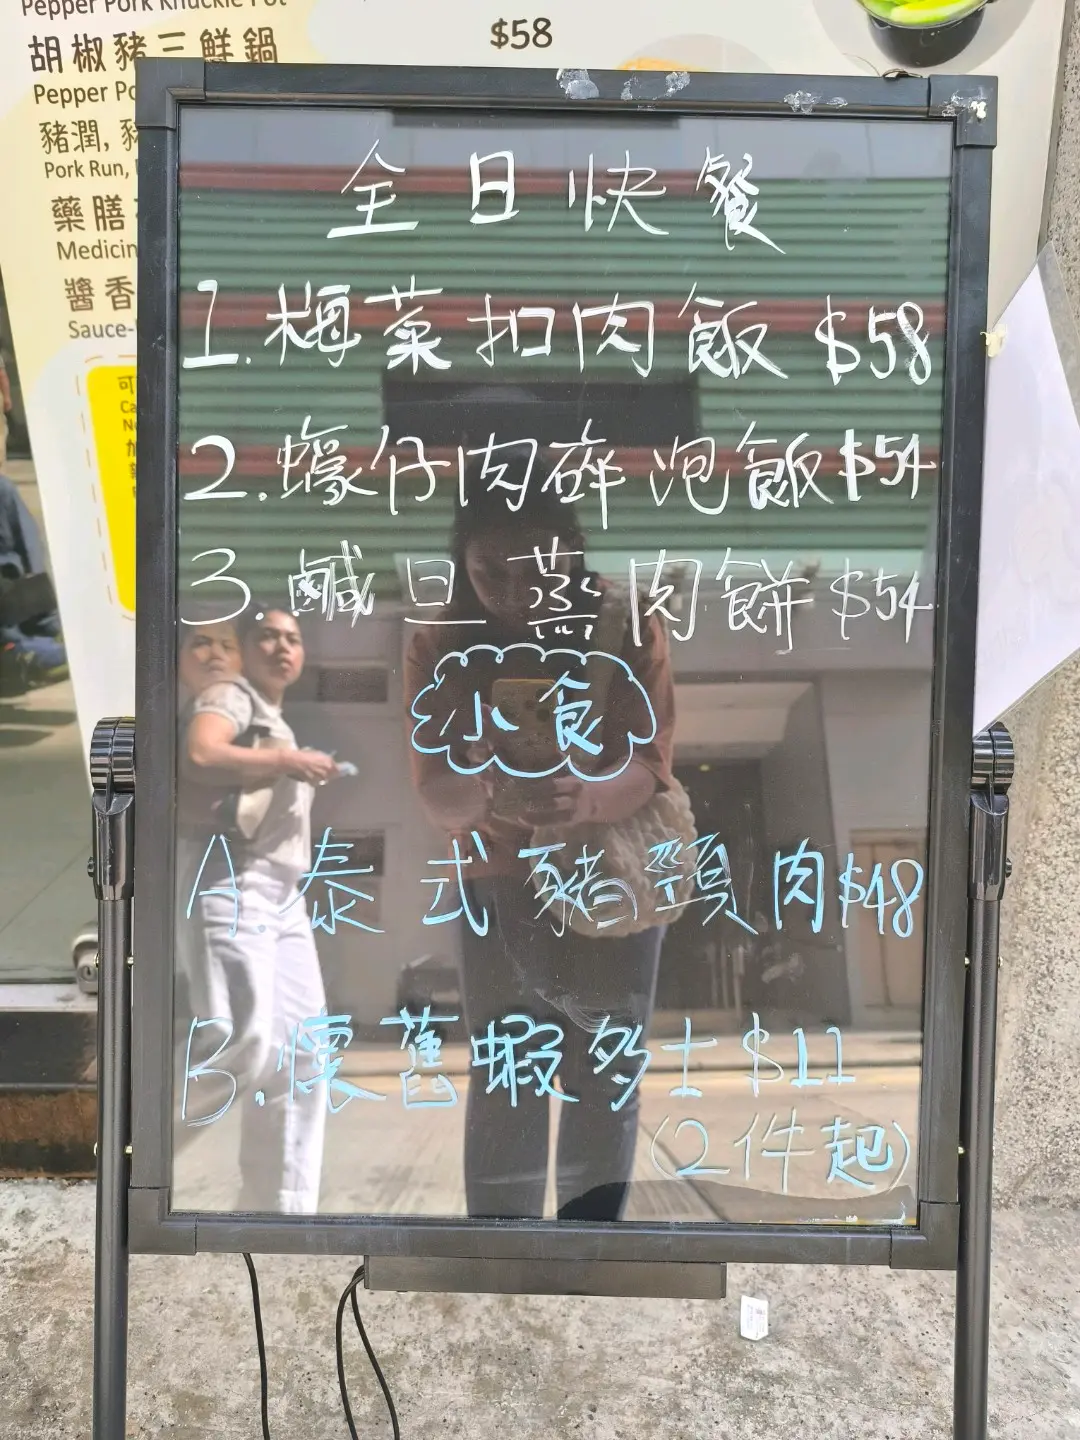 Pepper Pork Knuckle Pot
胡椒豬三鮮鍋
$58
Pepper
豬潤,
Pork Run,
藥膳
Medicin
醬香
Sauce-
可
Ca
全日快餐
1.梅菜扣肉飯 $58
2.蠔仔肉碎泡飯 $54
3.鹹旦蒸肉餅 $54
小食
A.泰式豬頸肉 $48
B.懷舊蝦多士 $11
(2件起)